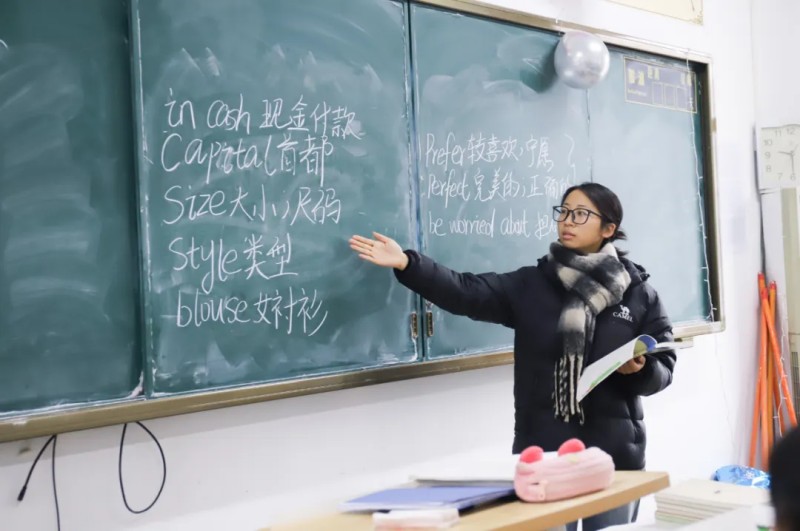 in cash 现金付款
Capital 首都
Size 大小,尺码
Style 类型
blouse 女衬衫
Prefer 较喜欢,宁愿
Perfect 完美的,正确的
be worried about
CAMEL